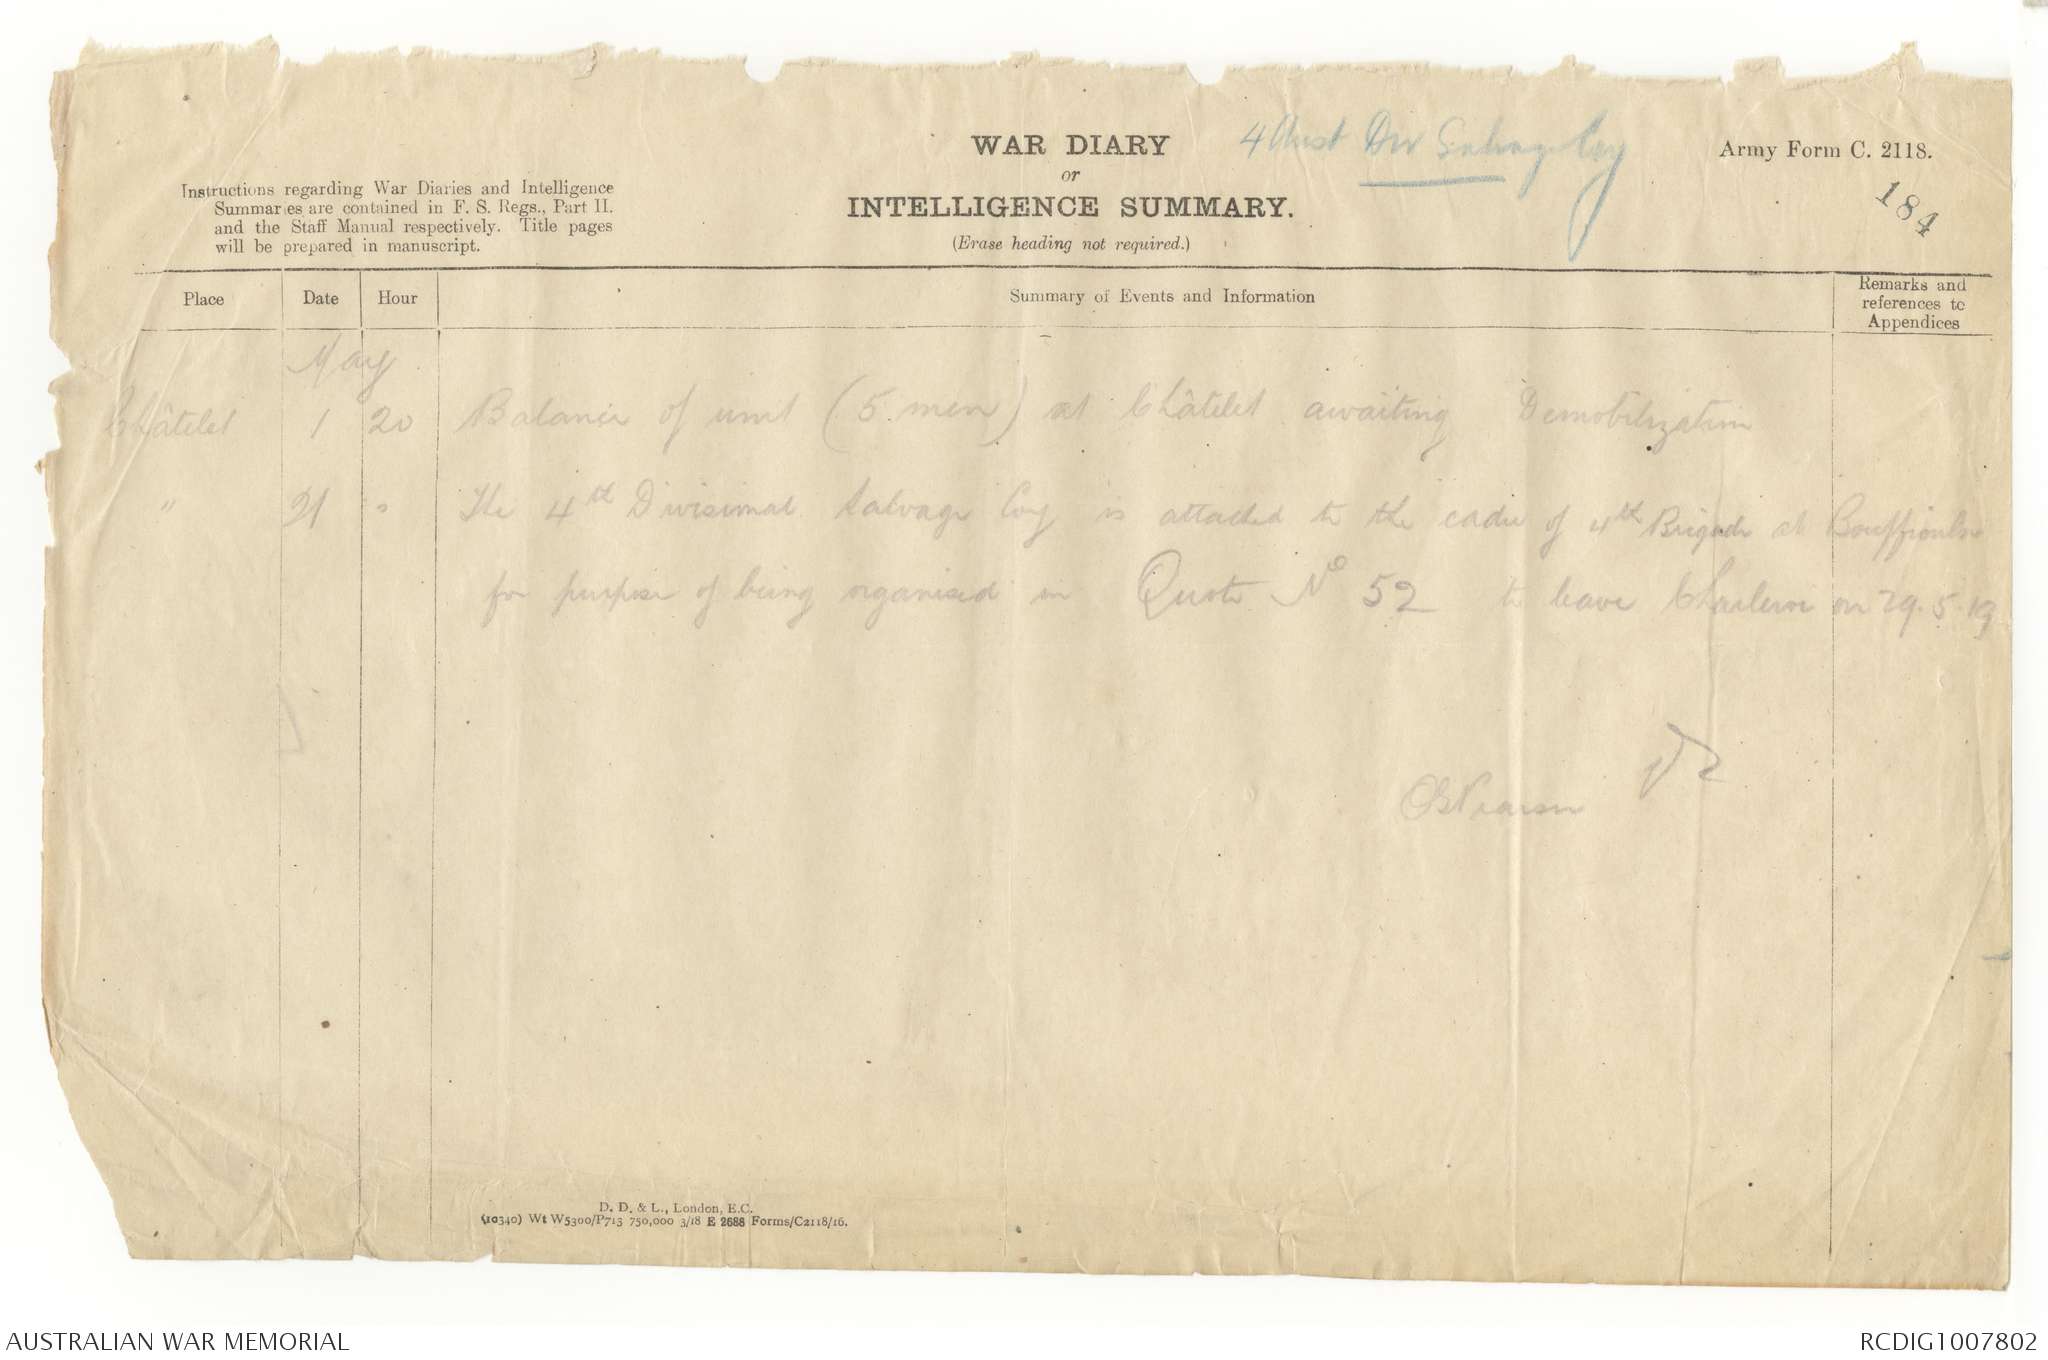 WAR DIARY
or
INTELLIGENCE SUMMARY.
(Erase heading not required.)
4 Aust Div Salvage Coy
Army Form C. 2118.
184
Instructions regarding War Diaries and Intelligence
Summaries are contained in F. S. Regs., Part II.
and the Staff Manual respectively. Title pages
will be prepared in manuscript.
Place Date Hour Summary of Events and Information Remarks and references to Appendices
May
Châtelet 1 20 Balance of unit (5 men) at Châtelet awaiting Demobilization
" 21 " The 4th Divisional Salvage Coy is attached to the cadre of 4th Brigade at Bouffioulx
for purpose of being organised in Quota No 52 to leave Charleroi on 29.5.19
Pearson
D. D. & L., London, E.C.
(10340) Wt W5300/P713 750,000 3/18 E 2688 Forms/C2118/16.
AUSTRALIAN WAR MEMORIAL
RCDIG1007802